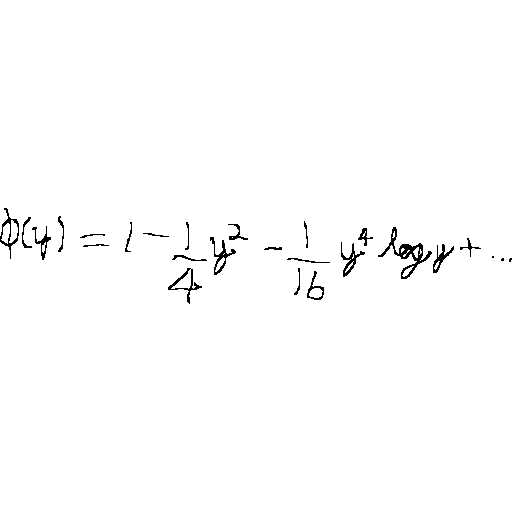 \phi(y) = 1 - \frac{1}{4} y^2 - \frac{1}{16} y^4 \log y + \ldots